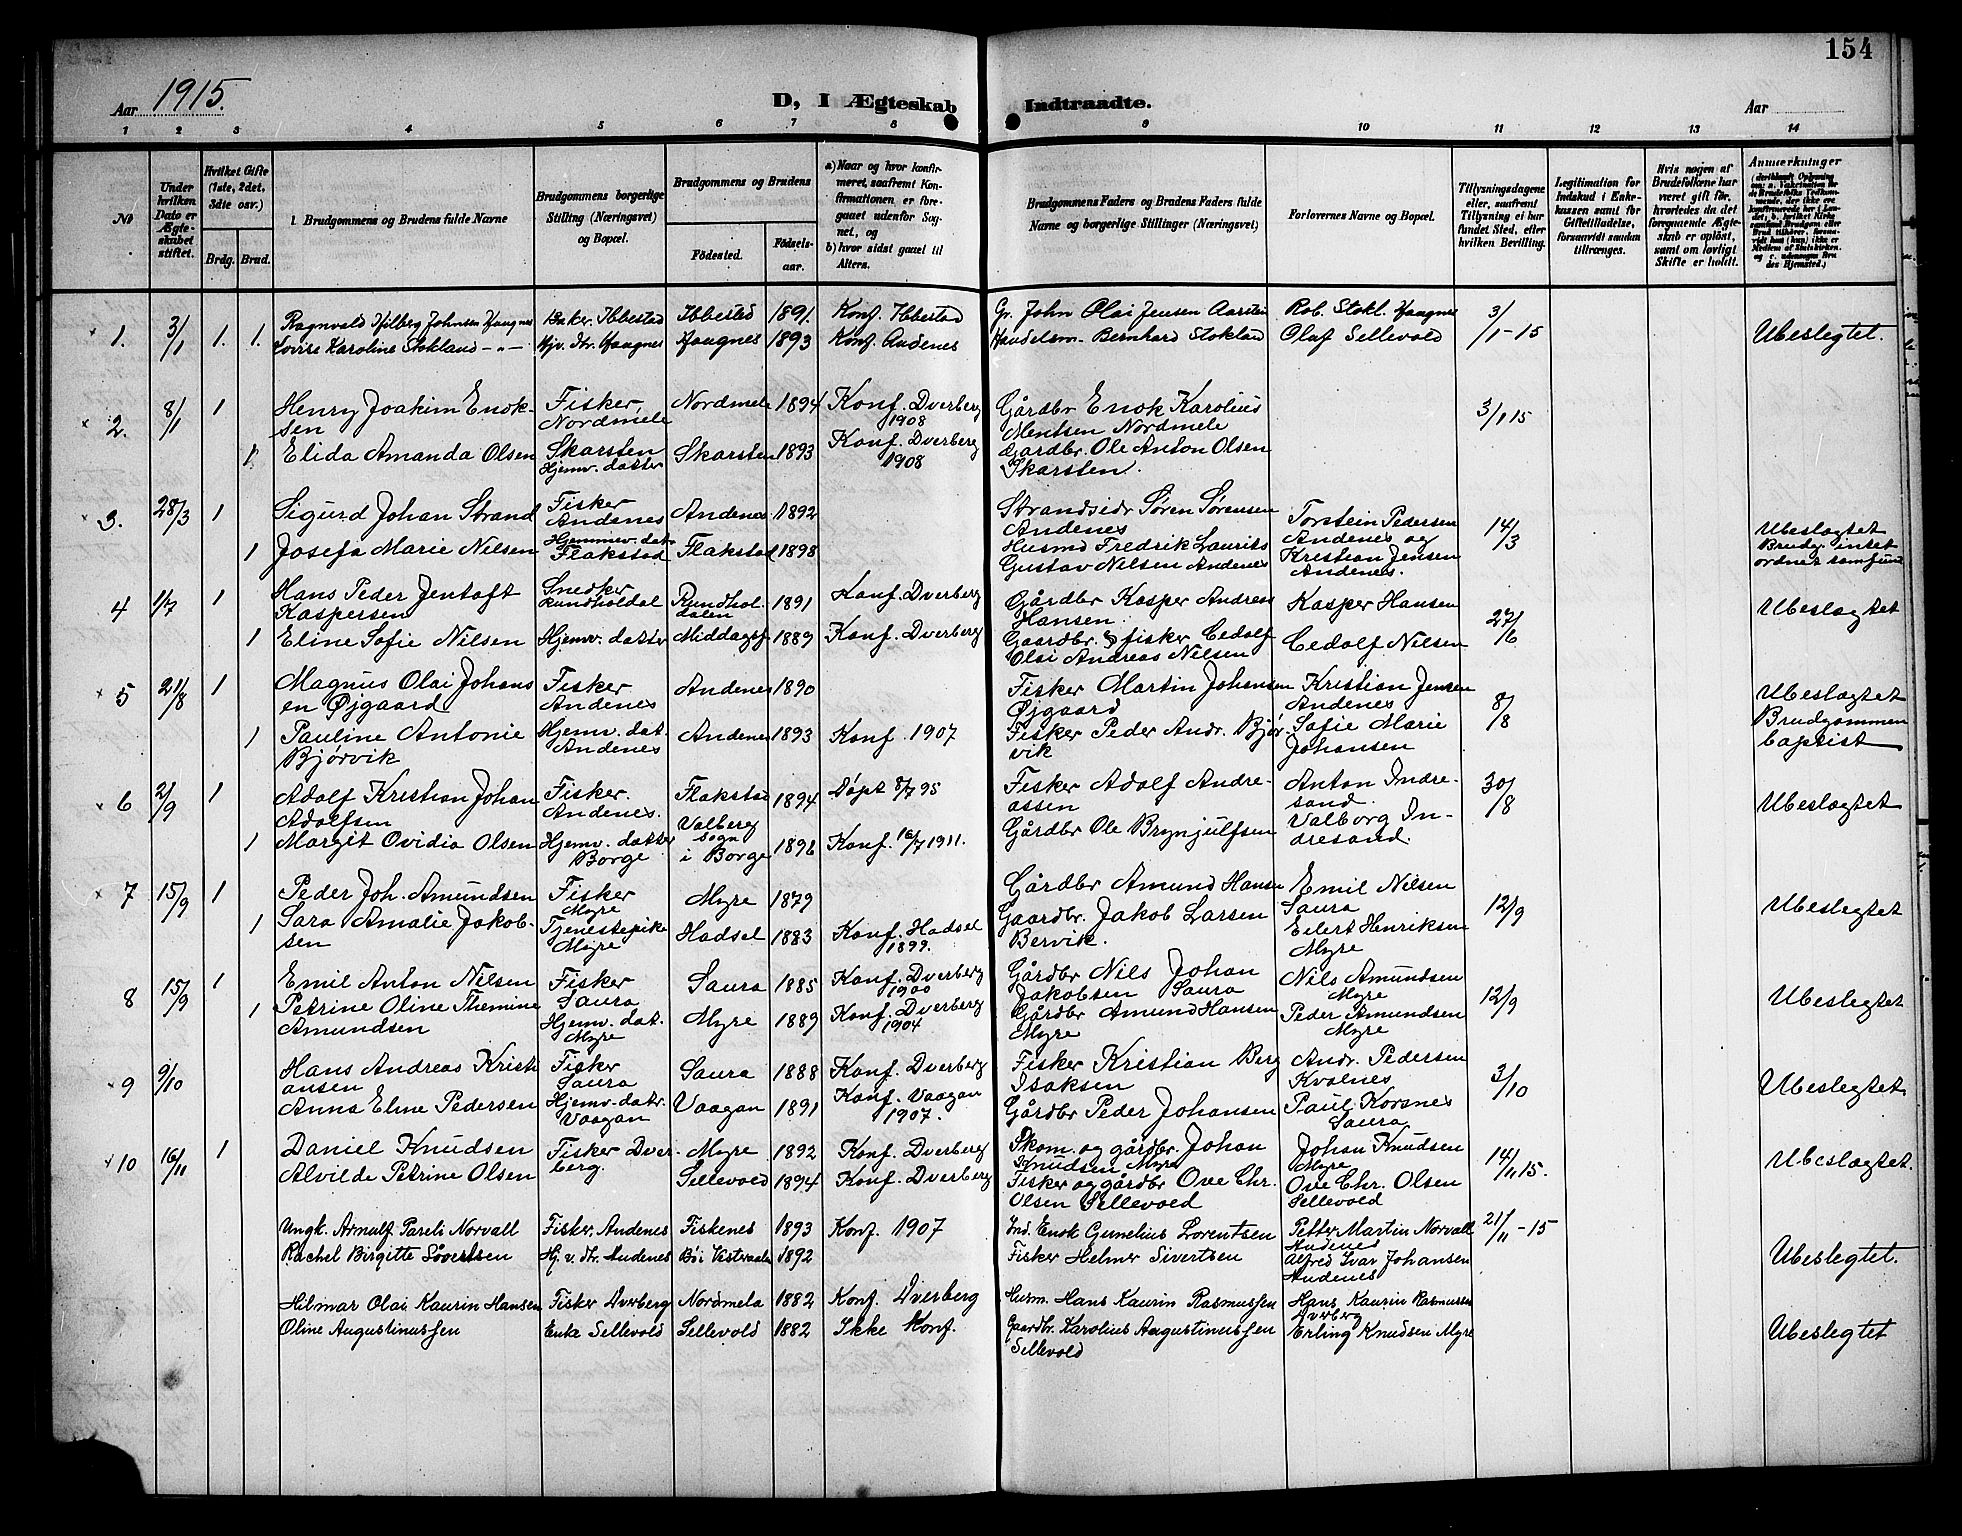 154
Aar 1915.
D, I Ægteskab Indtraadte.
Aar
1 2 3 4 5 6 7 8 9 10 11 12 13 14
No
Under hvilken Dato er Ægteskabet stiftet.
Hvilket Gifte (1ste, 2det, 3die osv.)
Brdg. Brud.
1. Brudgommens og Brudens fulde Navne
Brudgommens borgerlige Stilling (Næringsvei) og Bopæl.
Brudgommens og Brudens
Fødested.
Fødselsaar.
a) Naar og hvor konfirmeret, saafremt Konfirmationen er foregaaet udenfor Sognet, og
b) hvor sidst gaaet til Alters.
Brudgommens Faders og Brudens Faders fulde Navne og borgerlige Stillinger (Næringsvei)
Forlovernes Navne og Bopæl.
Tillysningsdagene eller, saafremt Tillysning ei har fundet Sted, efter hvilken Bevilling.
Legitimation for Indskud i Enkekassen samt for Giftetilladelse, forsaavidt saadan tiltrænges.
Hvis nogen af Brudefolkene har været gift før, hvorledes da det foregaaende Ægteskab er opløst, samt om lovligt Skifte er holdt.
Anmærkninger
1. 3/1 1. 1. Ragnvald Hilberg Johnsen Haugnes Baker, Ibbestad Ibbestad 1891. Konf. Ibbestad Gr. John Olai Jensen Aarsten Rob. Stokl. Haugnes 3/1-15 Ubeslegtet.
Lovise Karoline Stokland -"- Hjv. dtr. Haugnes Haugnes 1893 Konf. Andenes Handelsm. Bernhard Stokland Olaf Sellevold
2. 8/1 1 Henry Joakim Enoksen Fisker, Nordmele Nordmele 1894 Konf. Dverberg 1908 Gårdbr Enok Karolius Mentsen Nordmele 3/1 15
1 Elida Amanda Olsen Skarsten Hjemv. datter Skarsten 1893 Konf. Dverberg 1908 Gardbr. Ole Anton Olsen Skarsten.
3. 28/3 1 Sigurd Johan Strand Fisker Andenes Andenes 1892 Strandsidr Søren Sørensen Andenes Torstein Pedersen Andenes og 14/3 Ubeslagtet
1 Josefa Marie Nilsen Hjemmev. dat. Flakstad Flakstad 1898 Husmd Fredrik Laurits Gustav Nilsen Andenes Kristian Jensen Andenes. Brudg. intet ordnet samfund
4 1/7 1 Hans Peder Jentoft Kaspersen Snedker Rundholdal Rundholdalen 1891 Konf. Dverberg Gårdbr Kasper Andreas Hansen. Kasper Hansen 27/6 Ubeslagtet
1 Eline Sofie Nilsen Hjemv. datter Middagsf 1889 Konf. Dverberg Gaardbr & fisker Cedolf Olai Andreas Nilsen Cedolf Nilsen
5 21/8 1 Magnus Olai Johansen Øjgaard Fisker Andenes Andenes 1890 Fisker Martin Johansen Øjgaard Kristian Jensen Andenes 8/8 Ubeslagtet
1 Pauline Antonie Bjørvik Hjemv. dat. Andenes Andenes 1893 Konf. 1907 Fisker Peder Andr. Bjørvik Sofie Marie Johansen Brudgommen baptist
6 2/9 1 Adolf Kristian Johan Adolfsen Fisker. Andenes. Flakstad 1894 Døpt 8/7 95 Fisker Adolf Andreassen Anton Indresand. 30/8 Ubeslagtet
1 Margit Ovidia Olsen Hjemv. datter Borge Valberg sogn i Borge 1896 Konf. 16/7 1911. Gårdbr Ole Brynjulfsen Valborg Indresand.
7 15/9 1 Peder Joh. Amundsen Fisker Myre Myre 1879 Gårdbr Amund Hansen Emil Nilsen Saura 12/9 Ubeslegtet
1 Sara Amalie Jakobsen Tjenestepike Myre Hadsel 1883 Konf. Hadsel 1899. Gaardbr. Jakob Larsen Bervik. Eilert Henriksen Myre
8 15/9 1 Emil Anton Nilsen Fisker Saura Saura 1885 Konf. Dverberg 1900 Gårdbr Nils Johan Jakobsen Saura Nils Amundsen Myre 12/9 Ubeslegtet
1 Petrine Oline Themine Amundsen Hjemv. dat. Myre Myre 1889 Konf. Dverberg 1904 Gårdbr Amund Hansen Myre Peder Amundsen Myre
9 9/10 Hans Andreas Kristiansen Fisker Saura Saura 1888 Konf. Dverberg Fisker Kristian Berg Isaksen Andr. Pedersen Kvalnes 3/10 Ubeslegtet
Anna Eline Pedersen Hjemv. datr. Vaagan Vaagan 1891 Konf. Vaagan 1907. Gårdbr Peder Johansen Paul Korsnes Saura
10 16/11 1 Daniel Knudsen Fisker Dverberg. Myre 1892 Konf. Dverberg Skom. og gårdbr. Johan Knudsen Myre Johan Knudsen Myre 14/11 15. Ubeslagtet.
Alvilde Petrine Olsen Sellevold 1894 Konf. Dverberg Fisker og gårdbr Ove Chr. Olsen Sellevold Ove Chr. Olsen Sellevold
Ungk. Arnulf Pareli Norvall Fisker, Andenes Fiskenes 1893 Konf. 1907 Ind. Enok Gunelius Lorentsen Petter Martin Norvall Andenes 21/11-15 Ubeslegtet.
Rachel Birgitte Sivertsen Hj. v. dtr. Andenes Bøi Vestraalen 1892 Fisker Helmer Sivertsen Alfred Ivar Johansen Andenes
Hilmar Olai Kaurin Hansen Fisker Dverberg Nordmela 1882 Konf. Dverberg Husm. Hans Kaurin Rasmussen Hans Kaurin Rasmussen Dverberg
Oline Augustinussen Enke Sellevold Sellevold 1882 Ikke Konf. Gaardbr. Karolius Augustinussen Sellevold Erling Knudsen Myre Ubeslegtet